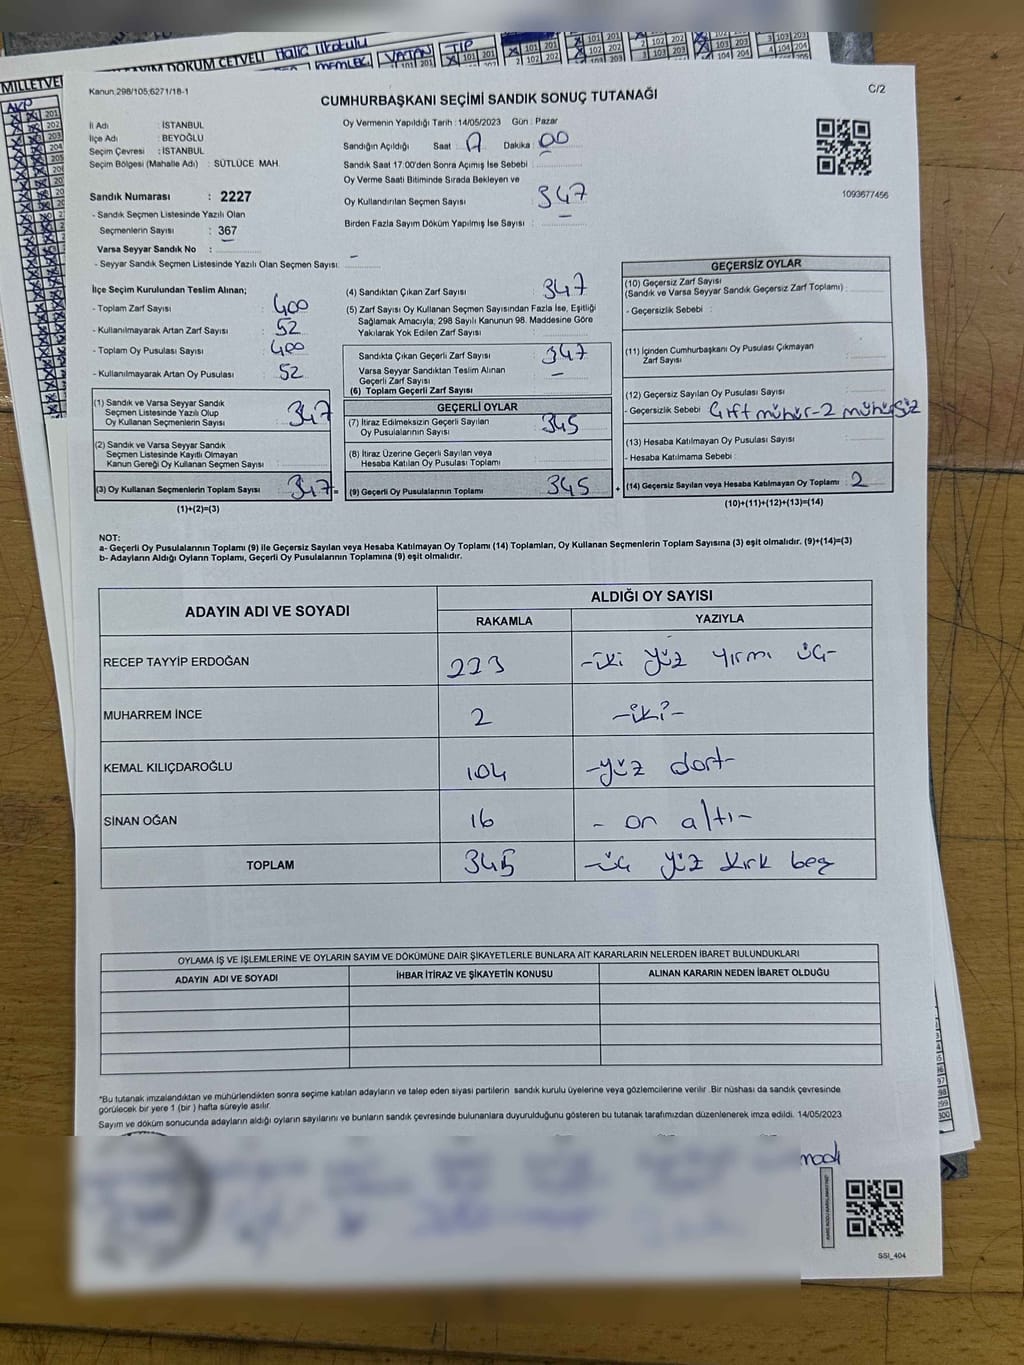 MİLLETVE
DÖKÜM CETVELİ Haliç İlkokulu
MEMLEK VATAN TİP
AKP
Kanun:298/105,6271/18-1
C/2
CUMHURBAŞKANI SEÇİMİ SANDIK SONUÇ TUTANAĞI
İl Adı : İSTANBUL
İlçe Adı : BEYOĞLU
Seçim Çevresi : İSTANBUL
Seçim Bölgesi (Mahalle Adı) : SÜTLÜCE MAH.
Sandık Numarası : 2227
- Sandık Seçmen Listesinde Yazılı Olan
Seçmenlerin Sayısı : 367
Varsa Seyyar Sandık No : -
- Seyyar Sandık Seçmen Listesinde Yazılı Olan Seçmen Sayısı: -
Oy Vermenin Yapıldığı Tarih : 14/05/2023 Gün : Pazar
Sandığın Açıldığı Saat : Dakika : 00
Sandık Saat 17:00'den Sonra Açımış İse Sebebi :
Oy Verme Saati Bitiminde Sırada Bekleyen ve
Oy Kullandırılan Seçmen Sayısı : 347
Birden Fazla Sayım Döküm Yapılmış İse Sayısı : -
1093677456
İlçe Seçim Kurulundan Teslim Alınan;
- Toplam Zarf Sayısı : 400
- Kullanılmayarak Artan Zarf Sayısı : 52
- Toplam Oy Pusulası Sayısı : 400
- Kullanılmayarak Artan Oy Pusulası : 52
(1) Sandık ve Varsa Seyyar Sandık
Seçmen Listesinde Yazılı Olup
Oy Kullanan Seçmenlerin Sayısı : 347
(2) Sandık ve Varsa Seyyar Sandık
Seçmen Listesinde Kayıtlı Olmayan
Kanun Gereği Oy Kullanan Seçmen Sayısı :
(3) Oy Kullanan Seçmenlerin Toplam Sayısı : 347 =
(1)+(2)=(3)
(4) Sandıktan Çıkan Zarf Sayısı : 347
(5) Zarf Sayısı Oy Kullanan Seçmen Sayısından Fazla İse, Eşitliği
Sağlamak Amacıyla, 298 Sayılı Kanunun 98. Maddesine Göre
Yakılarak Yok Edilen Zarf Sayısı :
Sandıkta Çıkan Geçerli Zarf Sayısı : 347
Varsa Seyyar Sandıktan Teslim Alınan
Geçerli Zarf Sayısı : -
(6) Toplam Geçerli Zarf Sayısı :
GEÇERLİ OYLAR
(7) İtiraz Edilmeksizin Geçerli Sayılan
Oy Pusulalarının Sayısı : 345
(8) İtiraz Üzerine Geçerli Sayılan veya
Hesaba Katılan Oy Pusulası Toplamı :
(9) Geçerli Oy Pusulalarının Toplamı : 345 +
GEÇERSİZ OYLAR
(10) Geçersiz Zarf Sayısı
(Sandık ve Varsa Seyyar Sandık Geçersiz Zarf Toplamı) :
- Geçersizlik Sebebi :
(11) İçinden Cumhurbaşkanı Oy Pusulası Çıkmayan
Zarf Sayısı :
(12) Geçersiz Sayılan Oy Pusulası Sayısı :
- Geçersizlik Sebebi : Çift mühür-2 mühürsüz
(13) Hesaba Katılmayan Oy Pusulası Sayısı :
- Hesaba Katılmama Sebebi :
(14) Geçersiz Sayılan veya Hesaba Katılmayan Oy Toplamı : 2
(10)+(11)+(12)+(13)=(14)
NOT:
a- Geçerli Oy Pusulalarının Toplamı (9) ile Geçersiz Sayılan veya Hesaba Katılmayan Oy Toplamı (14) Toplamları, Oy Kullanan Seçmenlerin Toplam Sayısına (3) eşit olmalıdır. (9)+(14)=(3)
b- Adayların Aldığı Oyların Toplamı, Geçerli Oy Pusulalarının Toplamına (9) eşit olmalıdır.
ADAYIN ADI VE SOYADI ALDIĞI OY SAYISI
RAKAMLA YAZIYLA
RECEP TAYYİP ERDOĞAN 223 -iki yüz yirmi üç-
MUHARREM İNCE 2 -iki-
KEMAL KILIÇDAROĞLU 104 -yüz dört-
SİNAN OĞAN 16 - on altı-
TOPLAM 345 -üç yüz kırk beş
OYLAMA İŞ VE İŞLEMLERİNE VE OYLARIN SAYIM VE DÖKÜMÜNE DAİR ŞİKAYETLERLE BUNLARA AİT KARARLARIN NELERDEN İBARET BULUNDUKLARI
ADAYIN ADI VE SOYADI İHBAR İTİRAZ VE ŞİKAYETİN KONUSU ALINAN KARARIN NEDEN İBARET OLDUĞU
*Bu tutanak imzalandıktan ve mühürlendikten sonra seçime katılan adayların ve talep eden siyasi partilerin sandık kurulu üyelerine veya gözlemcilerine verilir. Bir nüshası da sandık çevresinde
görülecek bir yere 1 (bir ) hafta süreyle asılır.
Sayım ve döküm sonucunda adayların aldığı oyların sayılarını ve bunların sandık çevresinde bulunanlara duyurulduğunu gösteren bu tutanak tarafımızdan düzenlenerek imza edildi. 14/05/2023
SSI_404